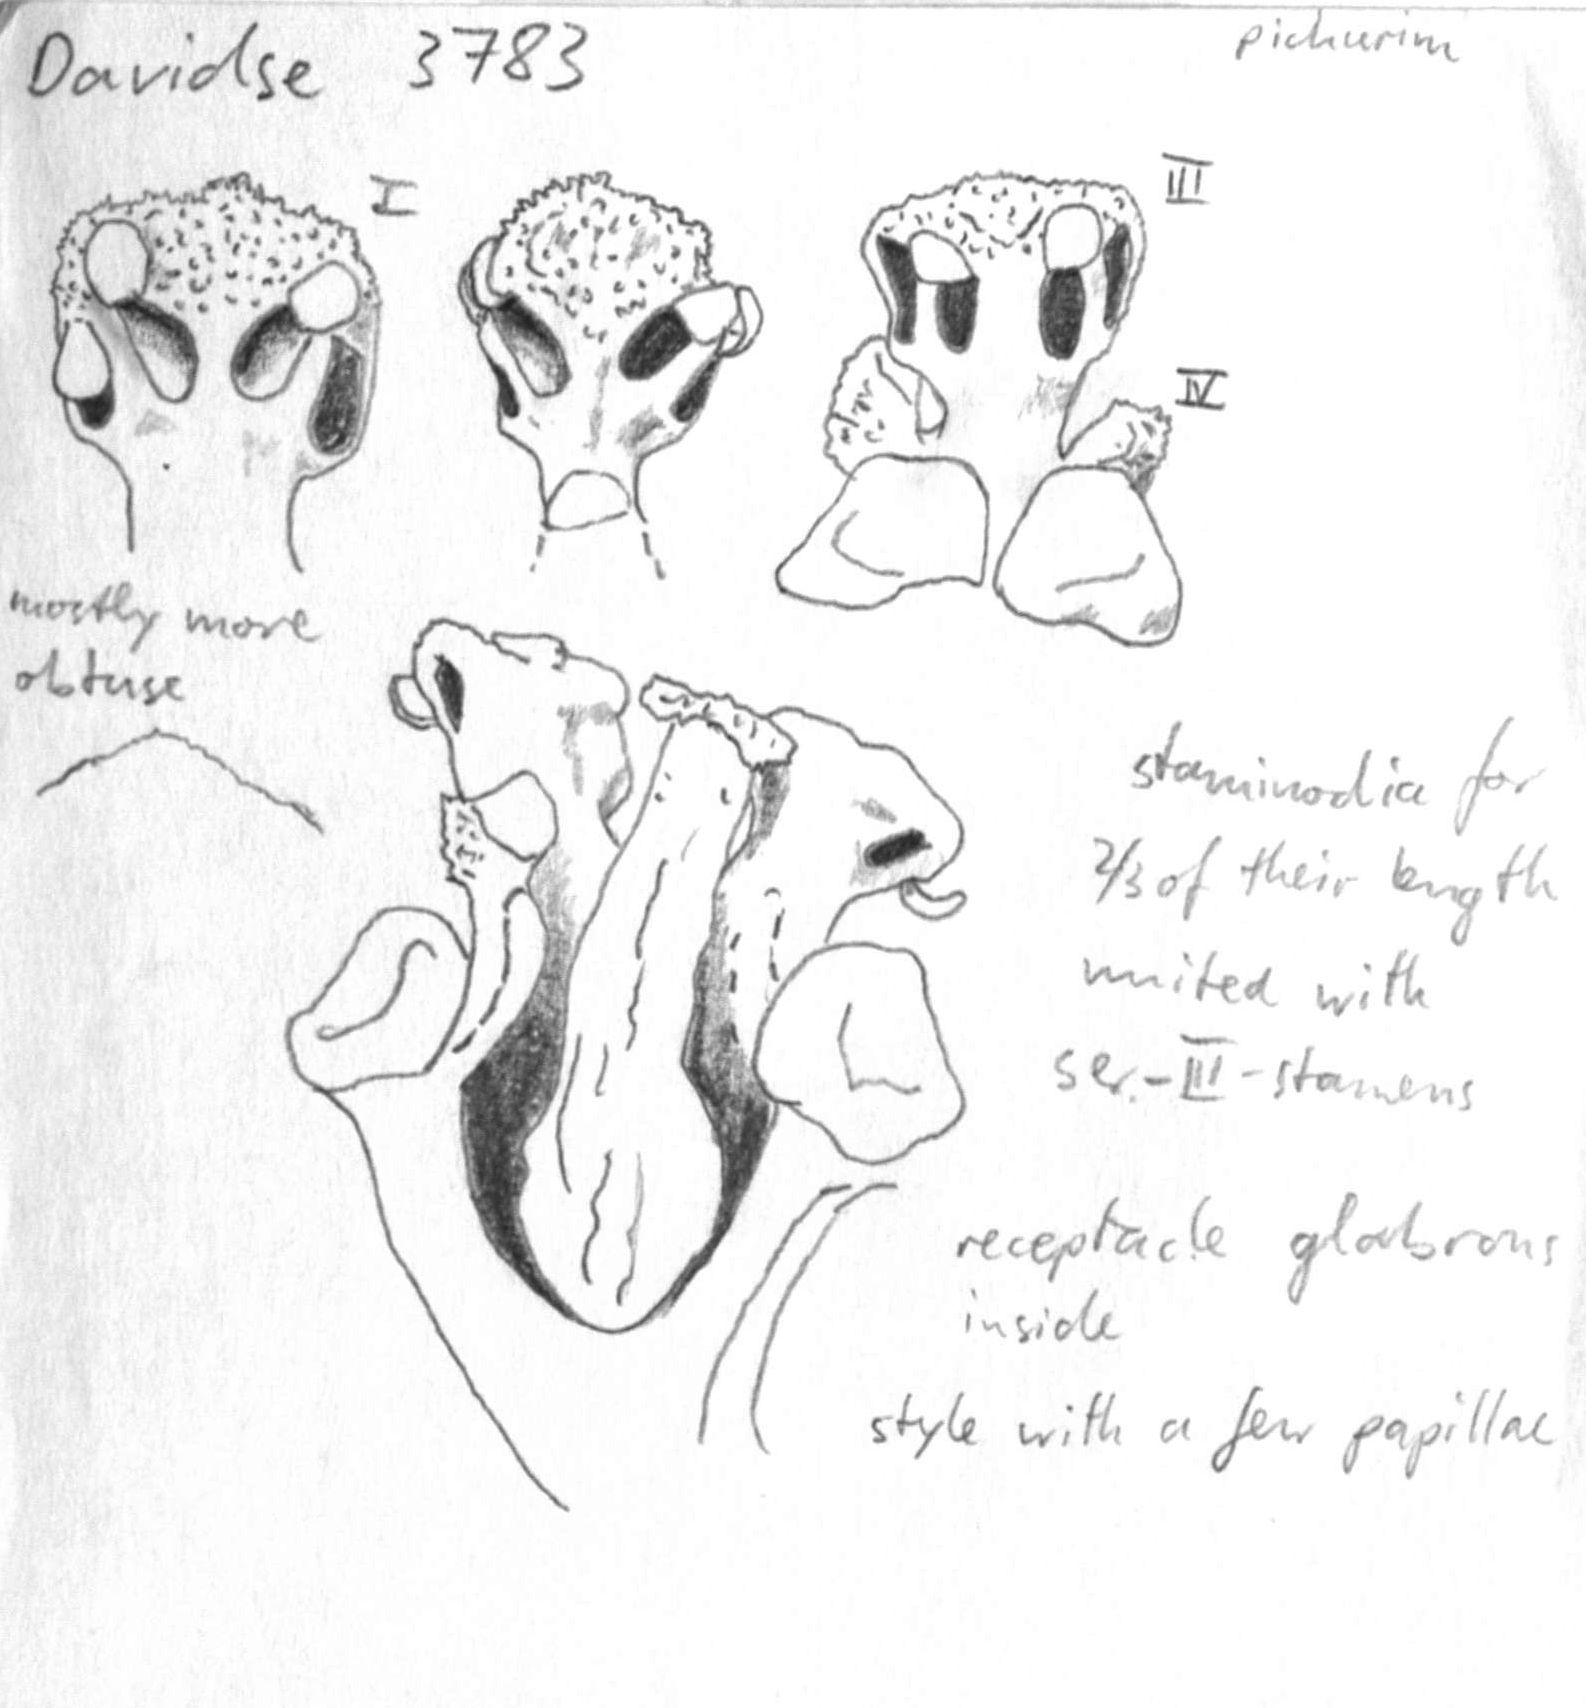 Davidse 3783
pichurim
I
III
IV
mostly more
obtuse
staminodia for
2/3 of their length
united with
ser.-III-stamens
receptacle glabrous
inside
style with a few papillae